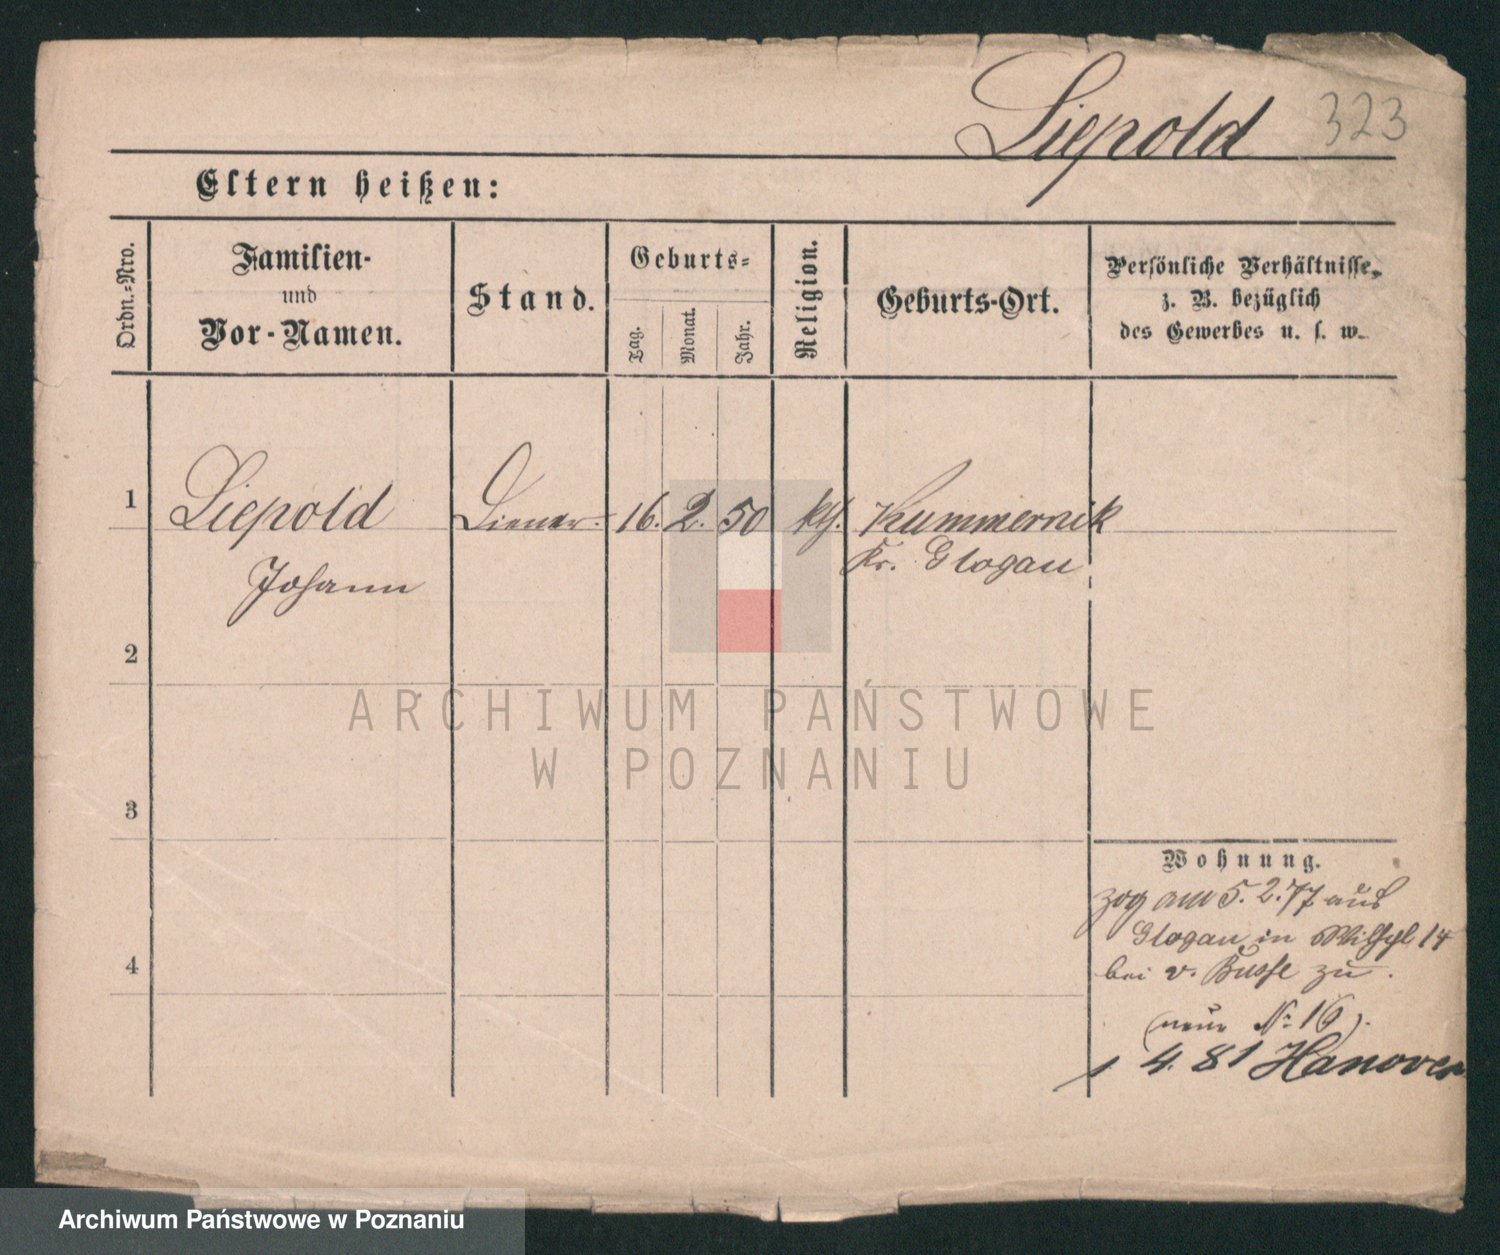 Liepold 323
Eltern heißen:
Ordn.-Nro.
Familien-
und
Vor-Namen.
Stand.
Geburts-
Tag.
Monat.
Jahr.
Religion.
Geburts-Ort.
Persönliche Verhältnisse,
z. B. bezüglich
des Gewerbes u. s. w.
1 Liepold Diener. 16. 2. 50 kth. Kummernik
Johann Kr. Glogau
2
3
4
Wohnung.
zog am 5. 2. 77 aus
Glogau in 14
bei v. Busse zu.
(neue No 16).
1 4. 81 Hanover
ARCHIWUM PAŃSTWOWE
W POZNANIU
Archiwum Państwowe w Poznaniu